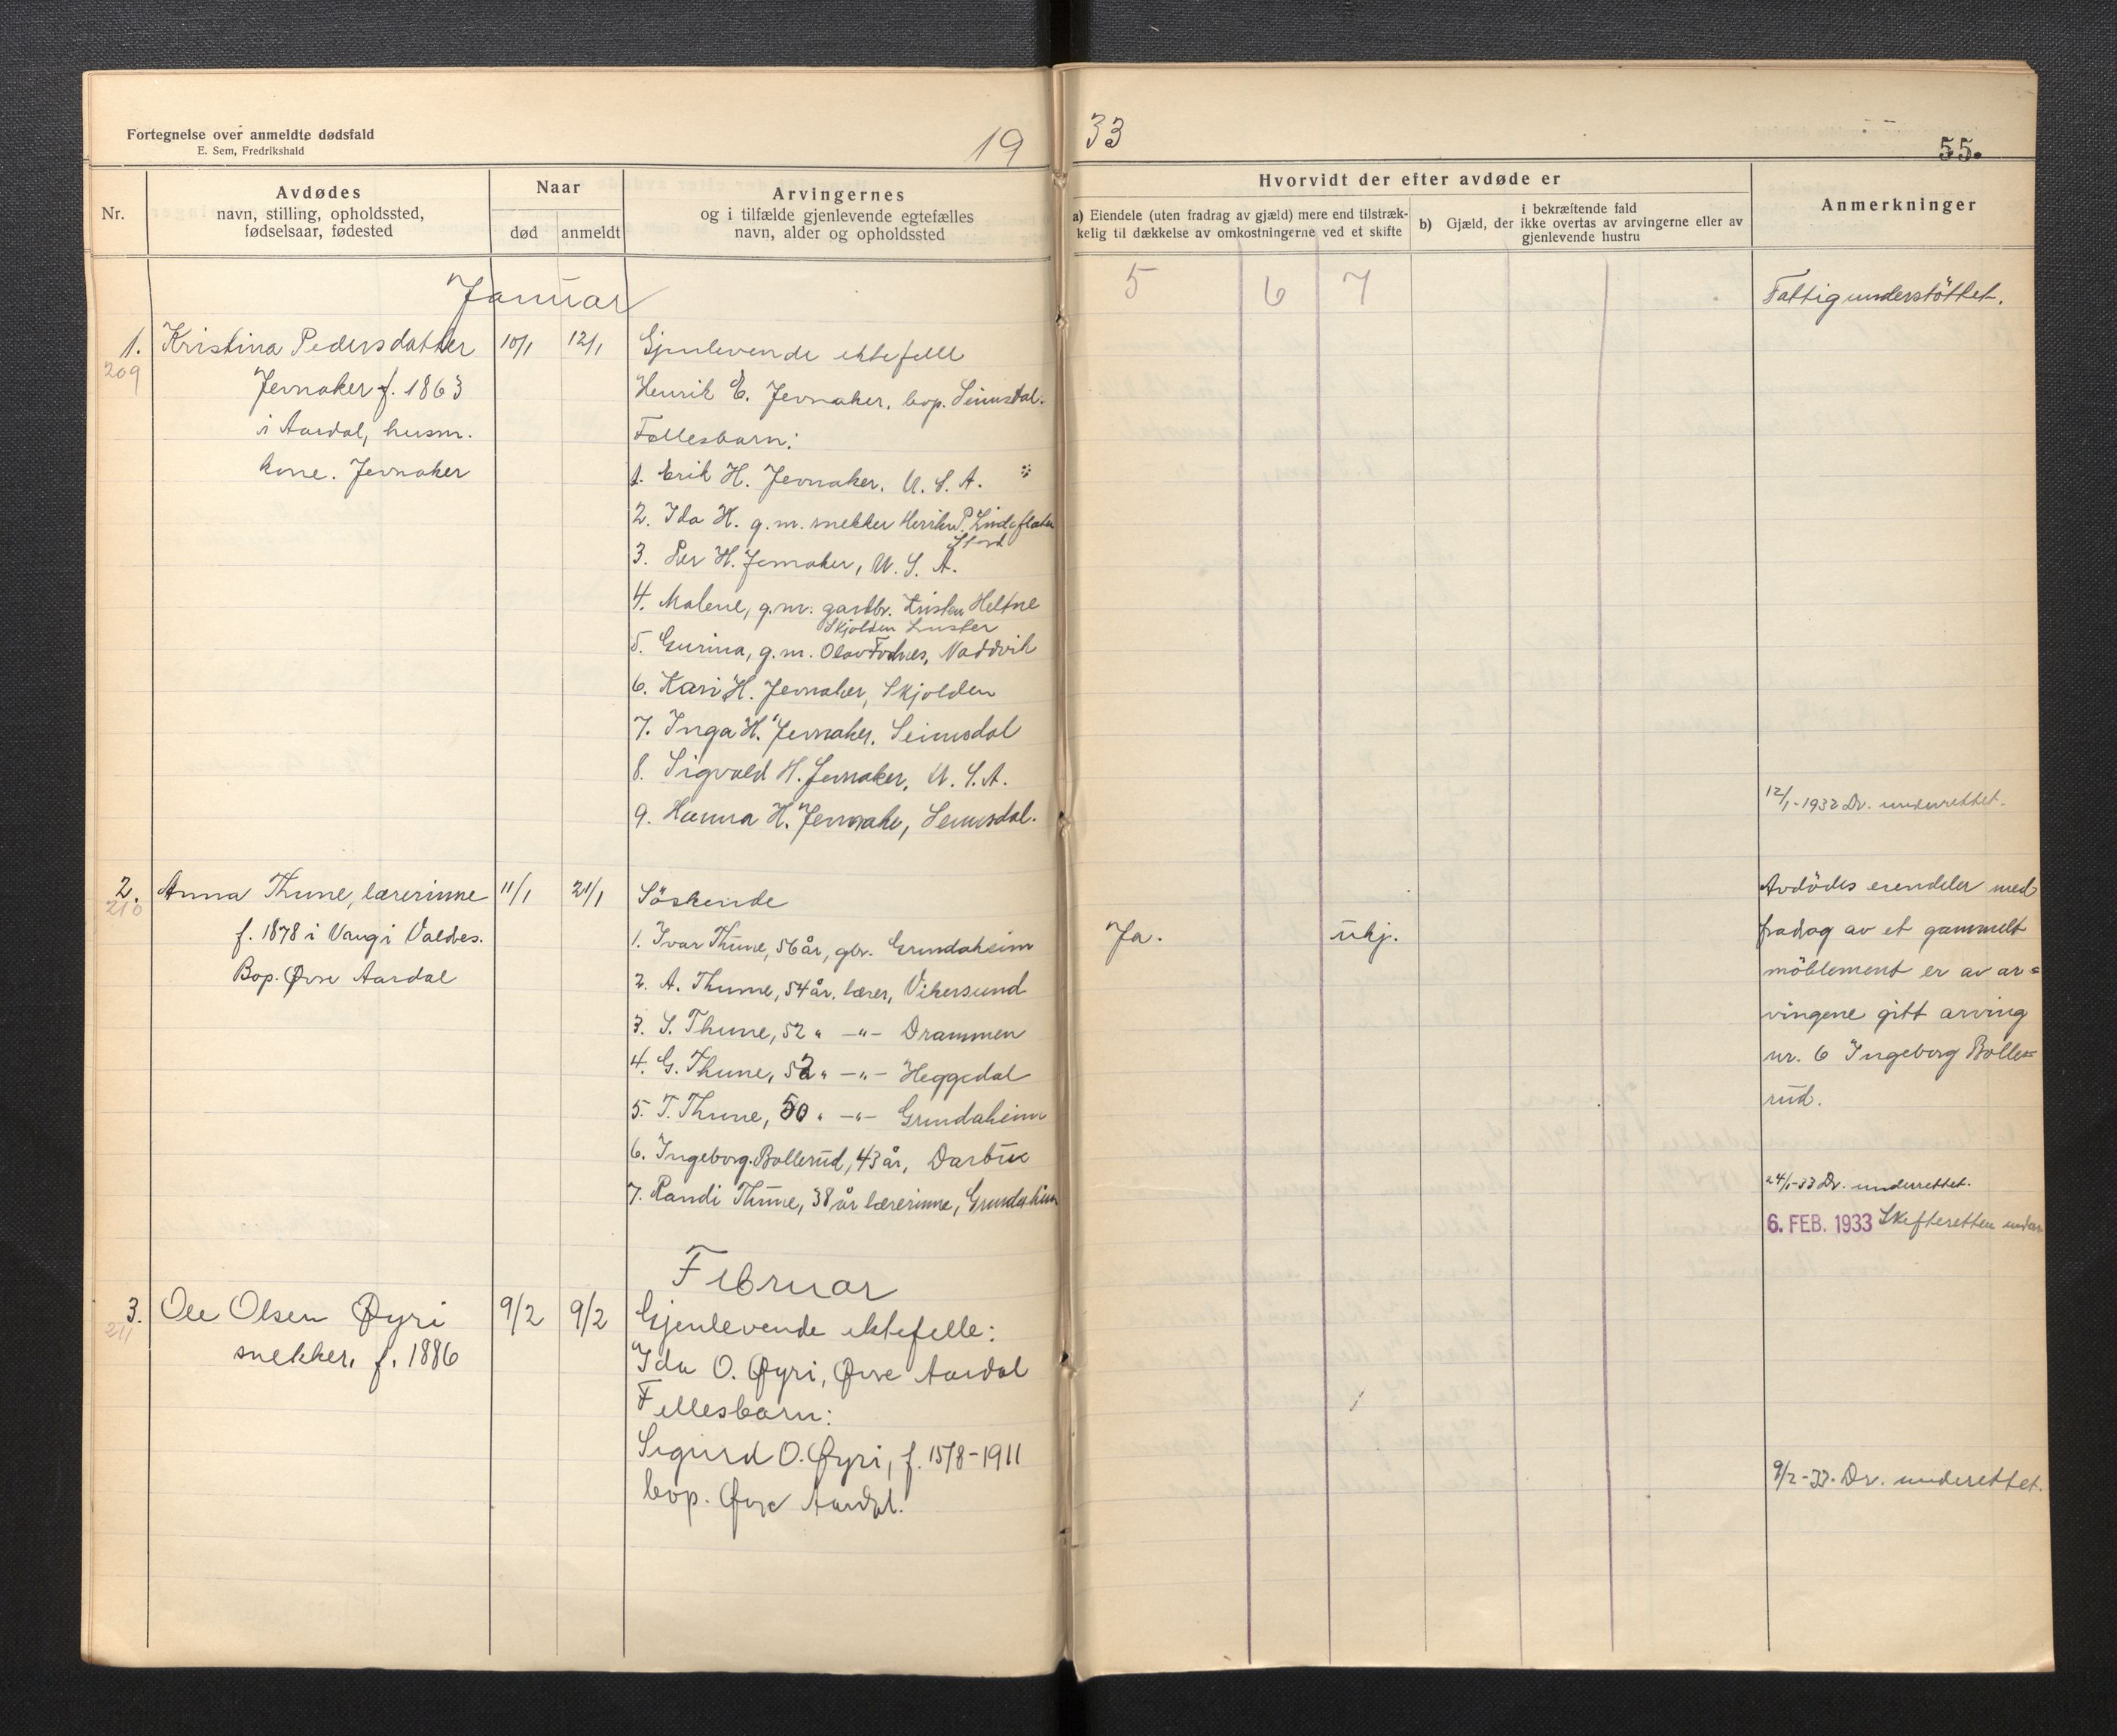 Fortegnelse over anmeldte dødsfald
E. Sem, Fredrikshald
19
33
55.
Nr.
Avdødes
navn, stilling, opholdssted,
fødselsaar, fødested
Naar
død
anmeldt
Arvingernes
og i tilfælde gjenlevende egtefælles
navn, alder og opholdssted
Hvorvidt der efter avdøde er
a) Eiendele (uten fradrag av gjæld) mere end tilstræk-
kelig til dækkelse av omkostningerne ved et skifte
b) Gjæld, der i bekræftende fald
ikke overtas av arvingerne eller av
gjenlevende hustru
Anmerkninger
5 6 7
Januar
1.
209
Kristina Pedersdatter
Jevnaker f. 1863
i Aardal, husm.
kone. Jevnaker
10/1
12/1
Gjenlevende ektefelle
Henrik E. Jevnaker, bop. Seimsdal.
Fellesbarn:
1. Erik H. Jevnaker, U. S. A.
2. Ida H. g. m. snekker Henrik P. Lindeflaten
Stord
3. Per H. Jevnaker, U. S. A.
4. Malene, g. m. gardbr. Kristen Heltne
Skjolden Luster
5. Gurina, g. m. Olav Fodnes, Naddvik
6. Kari H. Jevnaker, Skjolden
7. Inga H. Jevnaker, Seimsdal
8. Sigvald H. Jevnaker, U. S. A.
9. Hanna H. Jevnake, Seimsdal.
Fattigunderstöttet.
12/1-1933 Dv. underrettet.
2.
210
Anna Thune, lærerinne
f. 1878 i Vang i Valdres.
Bop. Øvre Aardal
11/1
21/1
Söskende
1. Ivar Thune, 56 år, gbr. Grindaheim
2. A. Thune, 54 år, lærer, Vikersund
3. S. Thune, 52 " -"- Drammen
4. G. Thune, 52 " -"- Heggedal
5. T. Thune, 50 " -"- Grindaheim
6. Ingeborg Bollerud, 43 år, Darbu
7. Randi Thune, 38 år lærerinne, Grindaheim
Ja.
ukj.
Avdödes eiendeler med
fradrag av et gammelt
möblement er av ar=
vingene gitt arving
nr. 6 Ingeborg Bolle=
rud.
24/1-33 Dv. underrettet.
6. FEB. 1933 Skifteretten underr
Februar
3.
211
Ole Olsen Øyri
snekker, f. 1886
9/2
9/2
Gjenlevende ektefelle:
Ida O. Øyri, Øvre Aardal
Fellesbarn:
Sigurd O. Øyri, f. 15/8-1911
bop. Øvre Aardal.
9/2-33. Dv. underettet.